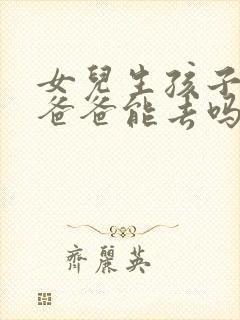 女兒生孩子
爸爸能去吗
齊麗英